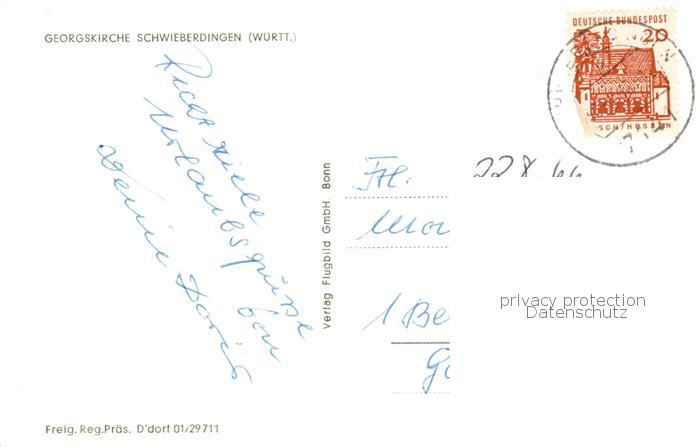 GEORGSKIRCHE SCHWIEBERDINGEN (WÜRTT.)
Recht viele
Urlaubsgrüße
von
Deine Doris
Verlag Flugbild GmbH. Bonn
DEUTSCHE BUNDESPOST
20
Frl.
22 8. 66
1 Be
privacy protection
Datenschutz
Freig. Reg. Präs. D'dorf 01/29711